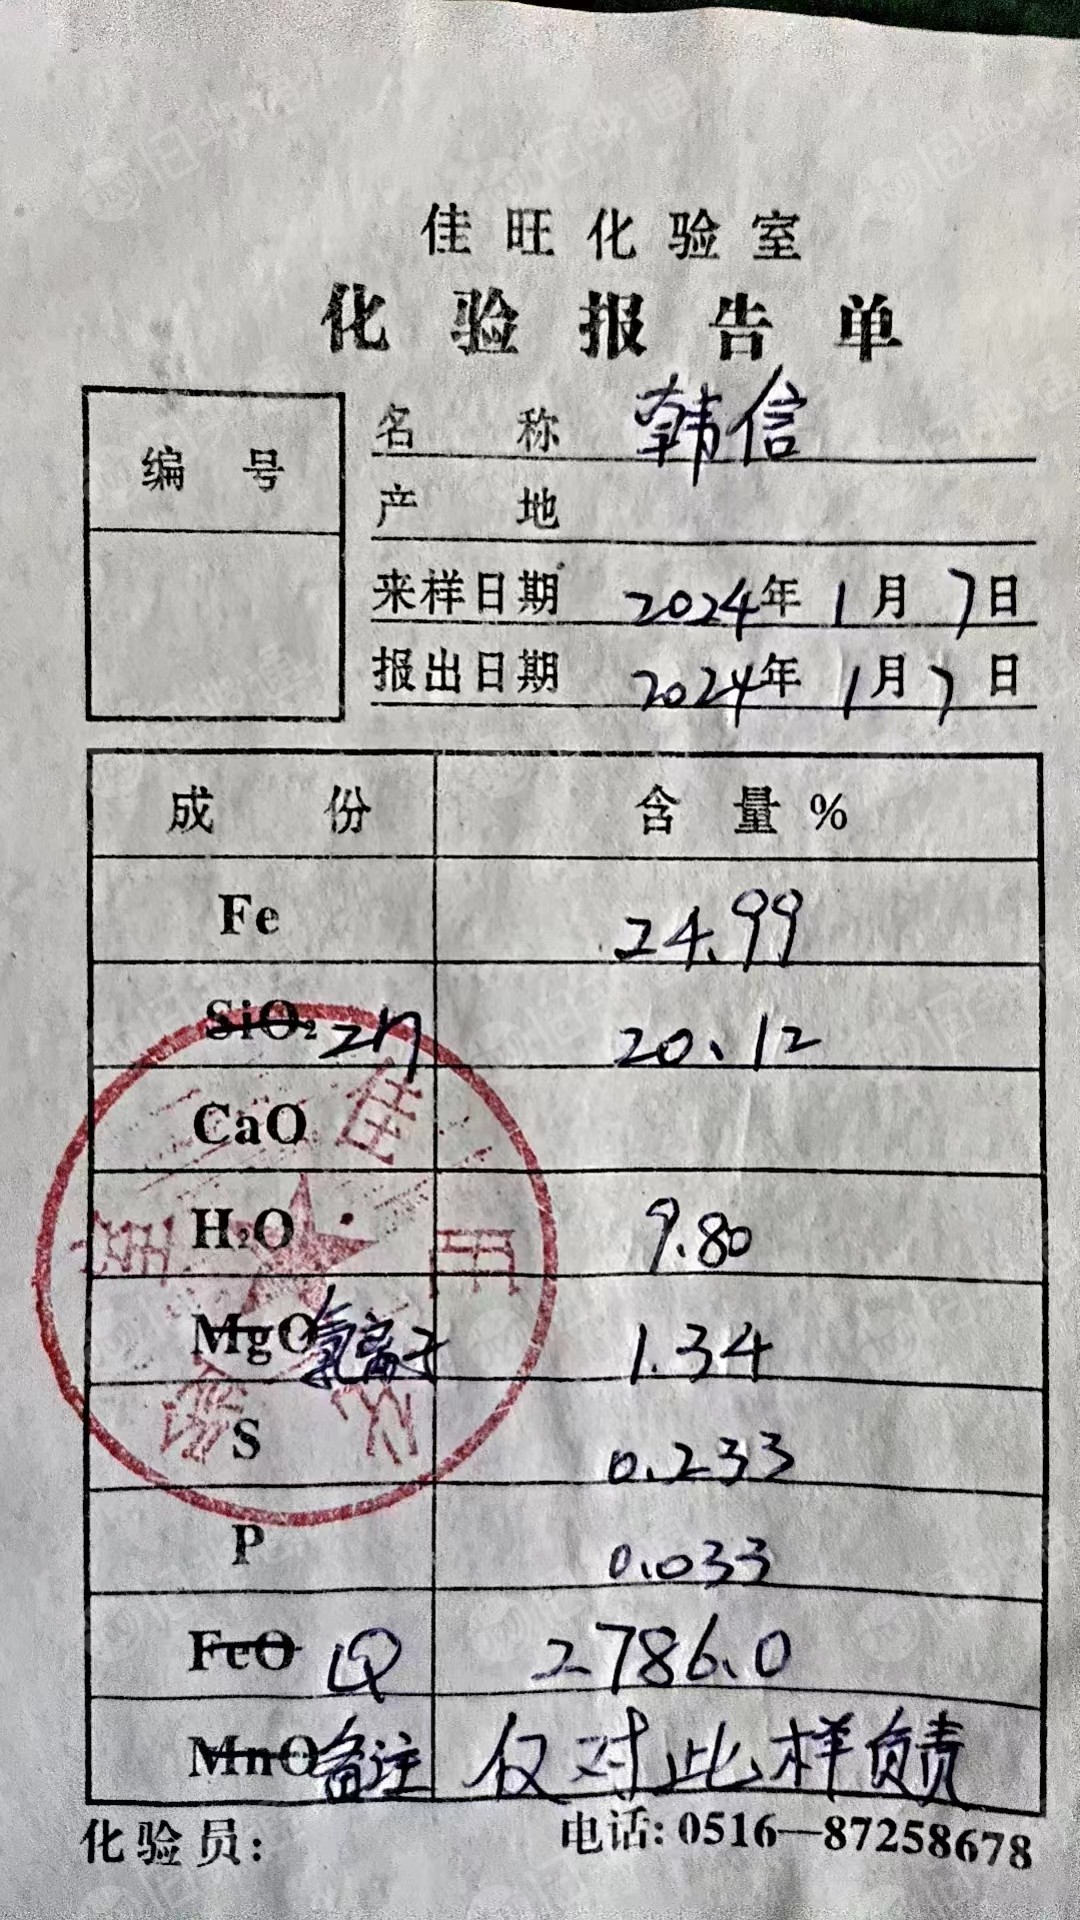 佳旺化验室
化验报告单
编号
名称 韩信
产地
来样日期 2024年1月7日
报出日期 2024年1月7日
成份 含量%
Fe 24.99
SiO₂ Zn 20.12
CaO
H₂O 9.80
MgO 氯离子 1.34
S 0.233
P 0.033
FeO Q 2786.0
MnO 备注 仅对此样负责
化验员:
电话: 0516—87258678